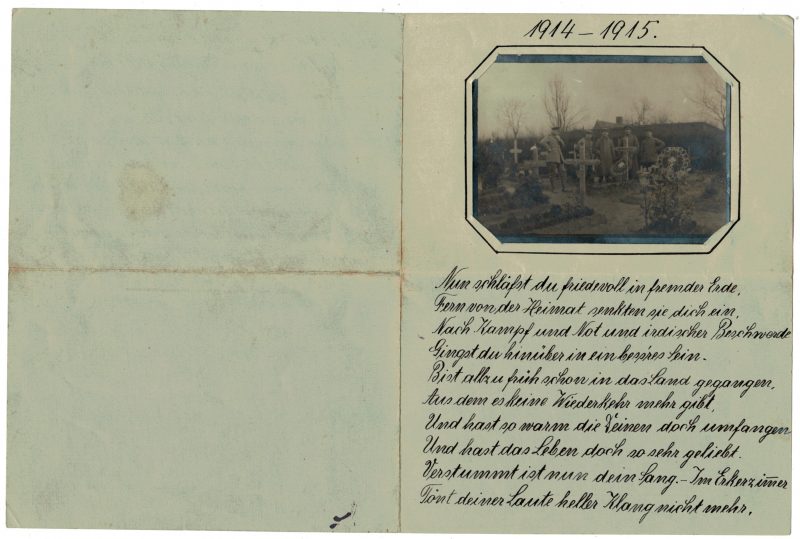 1914 – 1915.
Nun schläfst du friedevoll in fremder Erde,
Fern von der Heimat senkten sie dich ein,
Nach Kampf und Not und irdischer Beschwerde
Gingst du hinüber in ein bess'res Sein.
Bist allzu früh schon in das Land gegangen,
Aus dem es keine Wiederkehr mehr gibt,
Und hast so warm die Deinen doch umfangen
Und hast das Leben doch so sehr geliebt.
Verstummt ist nun dein Sang. – Im Erkerzimmer
Tönt deiner Laute heller Klang nicht mehr,